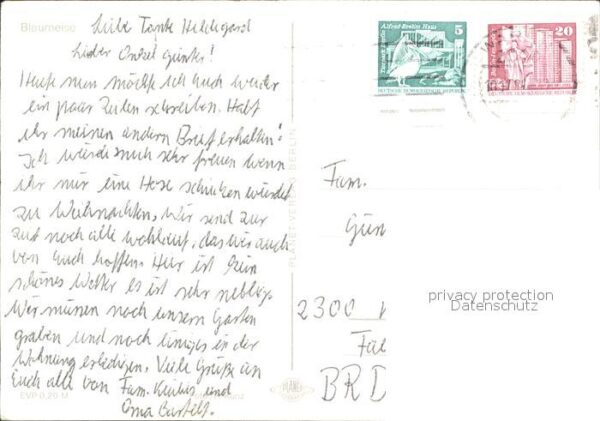 Blaumeise
Liebe Tante Hildegard
Lieber Onkel Günter!
Heute man möchte ich Euch wieder
ein paar Zeilen schreiben. Habt
ihr meinen andern Brief erhalten?
Ich würde mich sehr freuen wenn
ihr mir eine Hose schicken würdet
zu Weihnachten. Wir send zur
zeit noch alle wohlauf, das wir auch
von Euch hoffen. Hier ist kein
schönes Wetter es ist sehr neblig.
Wir müssen noch unsern Garten
graben und noch einiges in der
Wohnung erledigen. Viele Grüße an
Euch alle von Fam. und
Oma
EVP 0,20 M
PLANET-VERLAG BERLIN
PLANET
Alfred-Brehm-Haus
Tierpark Berlin
5
DEUTSCHE DEMOKRATISCHE REPUBLIK
20
DEUTSCHE DEMOKRATISCHE REPUBLIK
Fam.
Gün
2300
BRD
privacy protection
Datenschutz